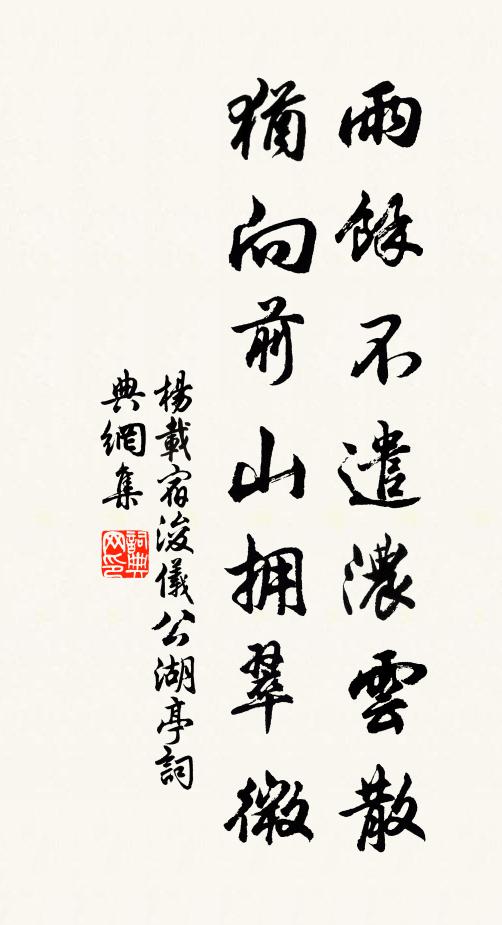 雨餘不遣濃雲散
猶向前山擁翠微
楊載宿浚儀公湖亭詞
典網集
詞典网印